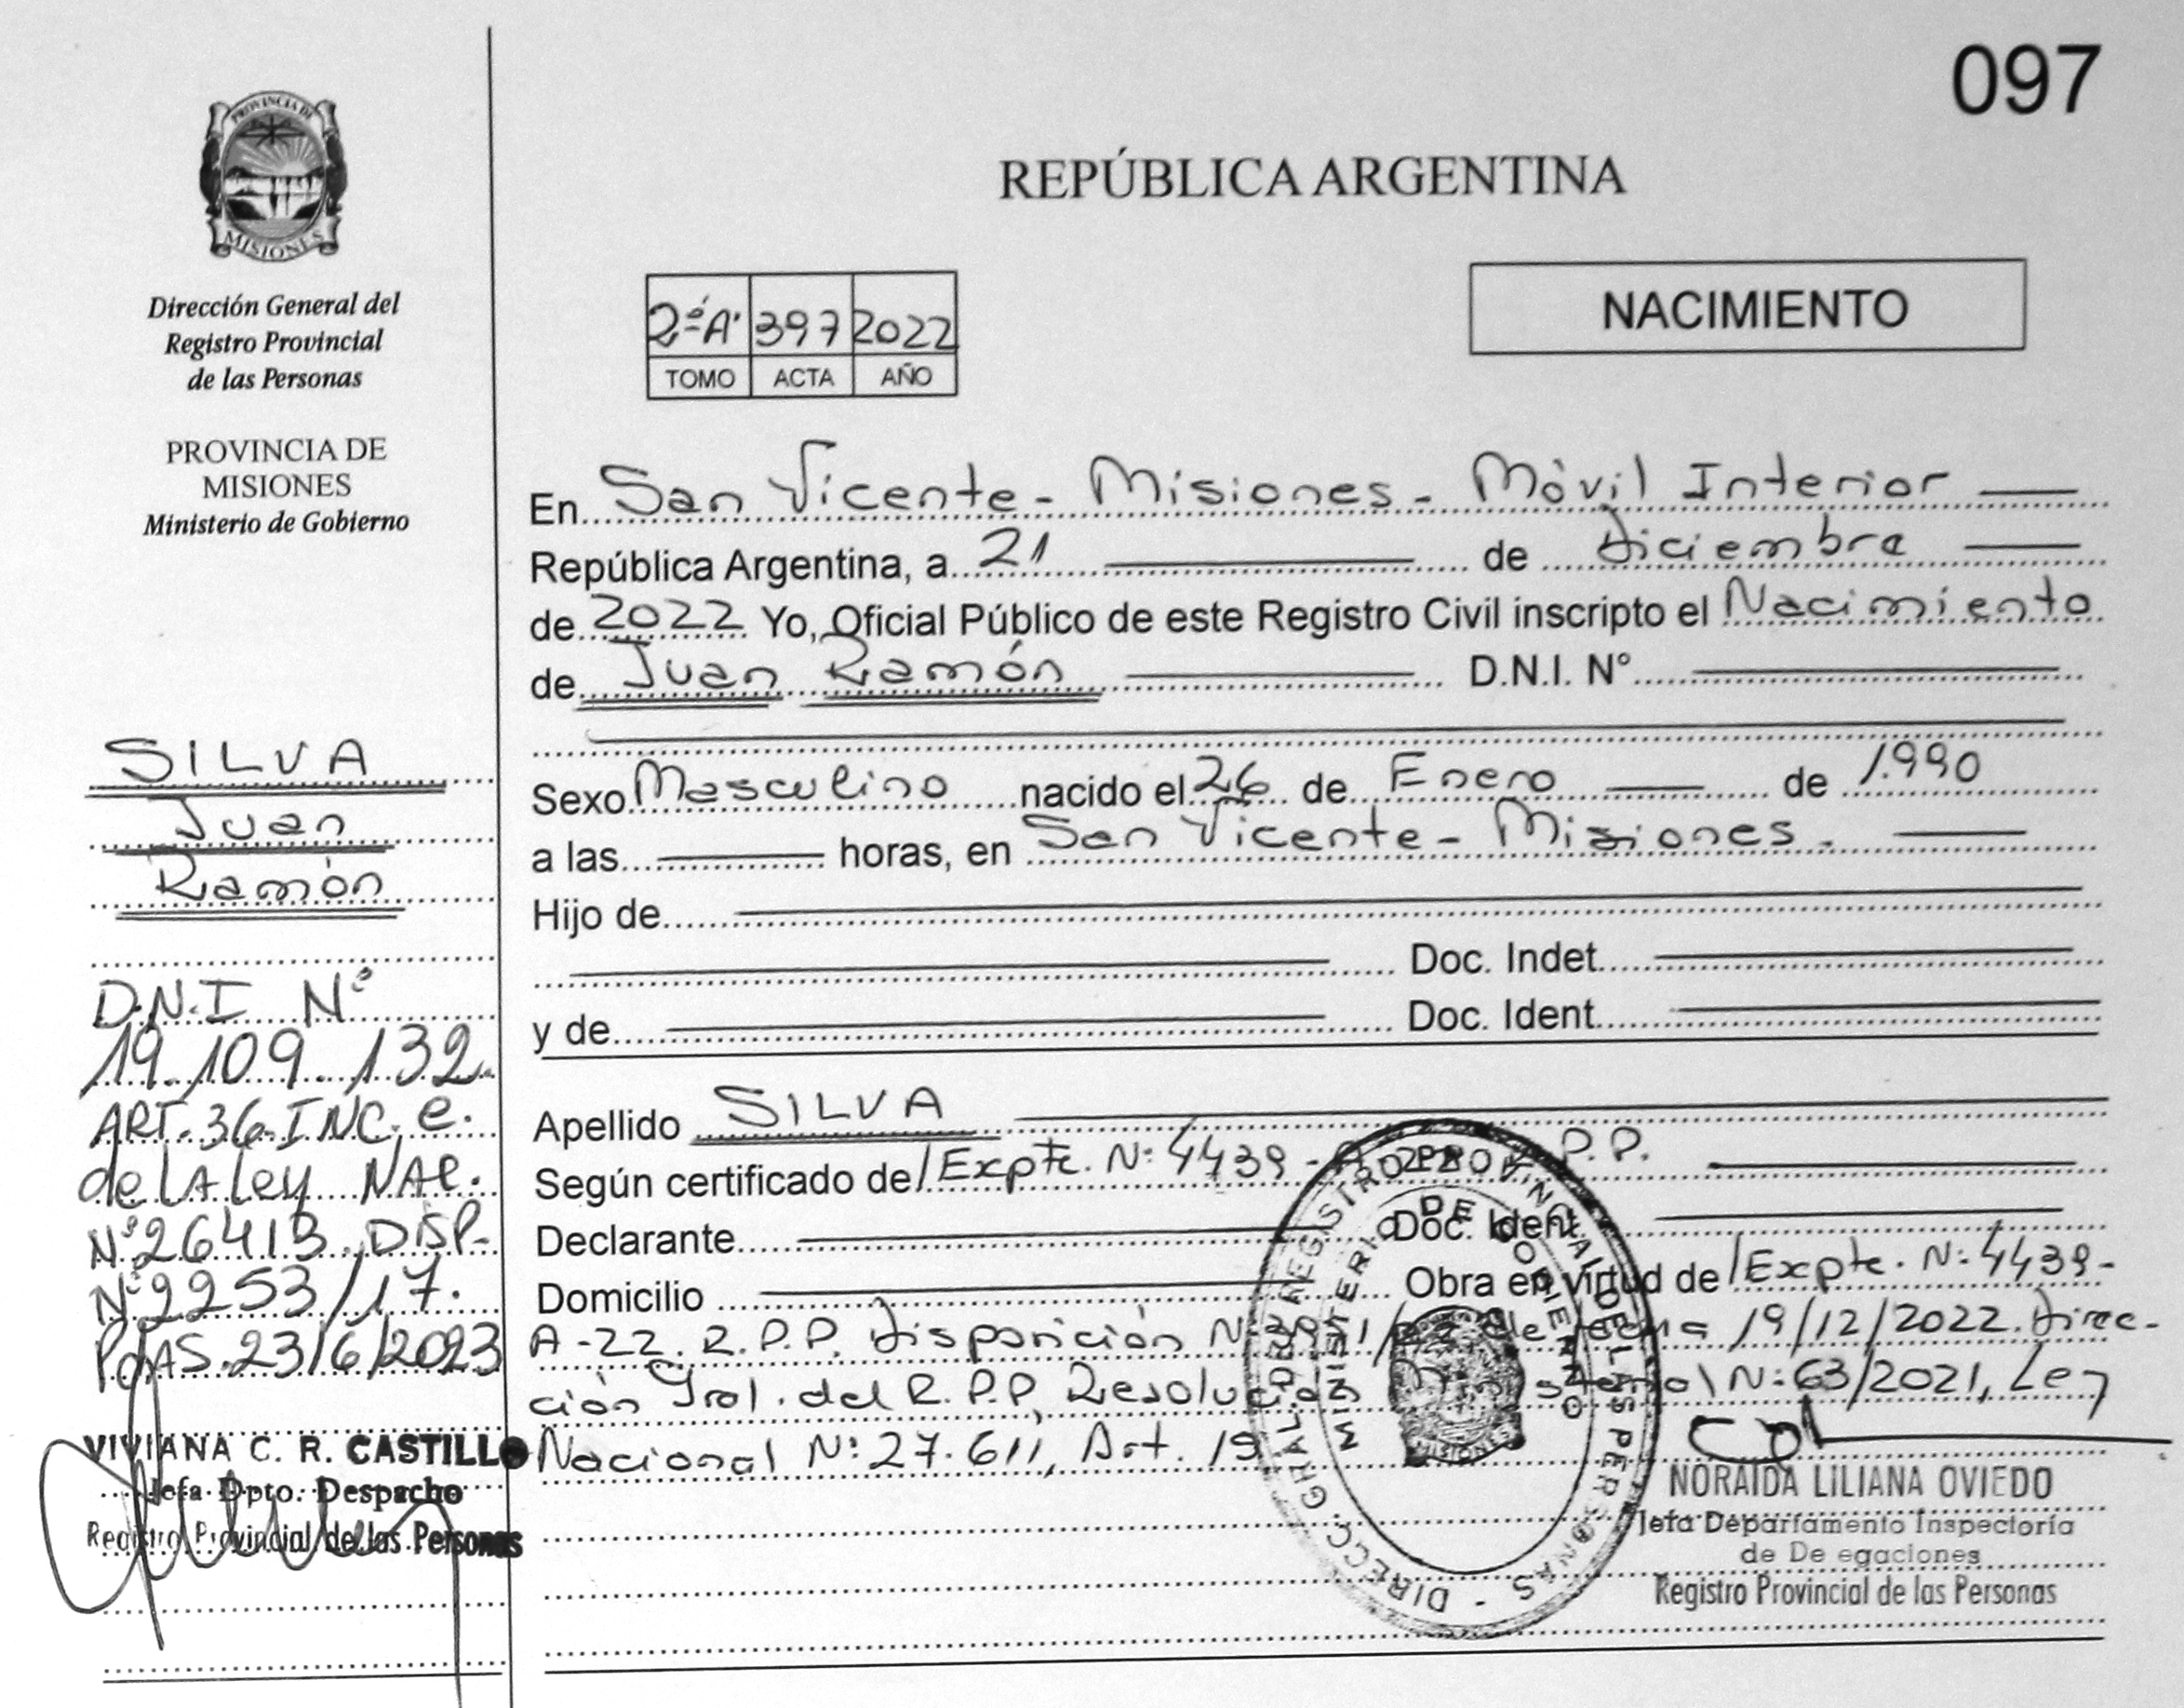 097
PROVINCIA DE
MISIONES
Dirección General del
Registro Provincial
de las Personas
PROVINCIA DE
MISIONES
Ministerio de Gobierno
REPÚBLICA ARGENTINA
2º A 397 2022
TOMO ACTA AÑO
NACIMIENTO
En San Vicente - Misiones - Móvil Interior
República Argentina, a 21 de diciembre
de 2022 Yo, Oficial Público de este Registro Civil inscripto el Nacimiento
de Juan Ramón D.N.I. N°
Sexo Masculino nacido el 26 de Enero de 1.990
a las horas, en San Vicente - Misiones.
Hijo de
Doc. Indet.
y de Doc. Ident.
Apellido SILVA
Según certificado de/Expte. Nº 4439 - R.P.P.
Declarante Doc. Ident.
Domicilio Obra en virtud de/Expte. Nº 4439-
A-22. R.P.P. Disposición Nº de fecha 19/12/2022. Direc-
ción Gral. del R.P.P, Resolución Ministerial Nº 63/2021, Ley
Nacional Nº 27.611, Art. 19
SILVA
Juan
Ramón
D.N.I Nº
19.109.132.
ART. 36 INC. e.
de LA Ley NAC.
Nº 26413. DISP.
Nº 2253/17.
PdAS. 23/6/2023
VIVIANA C. R. CASTILLO
Jefa Dpto. Despacho
Registro Provincial de las Personas
DIRECC. GRAL. DEL REGISTRO PROVINCIAL DE LAS PERSONAS -
MINISTERIO DE GOBIERNO
MISIONES
NORAIDA LILIANA OVIEDO
Jefa Departamento Inspectoría
de De egaciones
Registro Provincial de las Personas